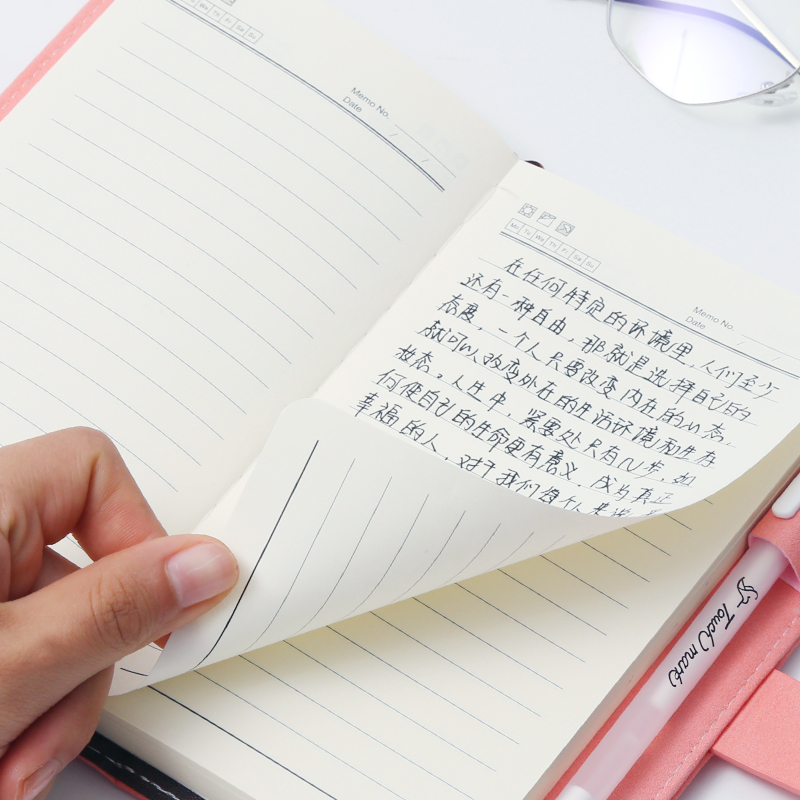 Mo Tu We Th Fr Sa Su
Memo No.
Date / /
Mo Tu We Th Fr Sa Su
Memo No.
Date / /
在任何特定的环境里,人们至少
还有一种自由,那就是选择自己的
态度,一个人只要改变内在的心态,
就可以改变外在的生活环境和生存
状态。人生中,紧要处只有几步,如
何使自己的生命更有意义,成为真正
幸福的人,对于我们每个人来说
Touch mark